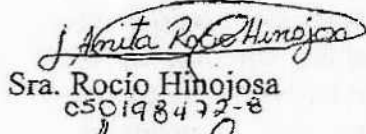 Anita Rocío Hinojosa
Sra. Rocío Hinojosa
050198472-8